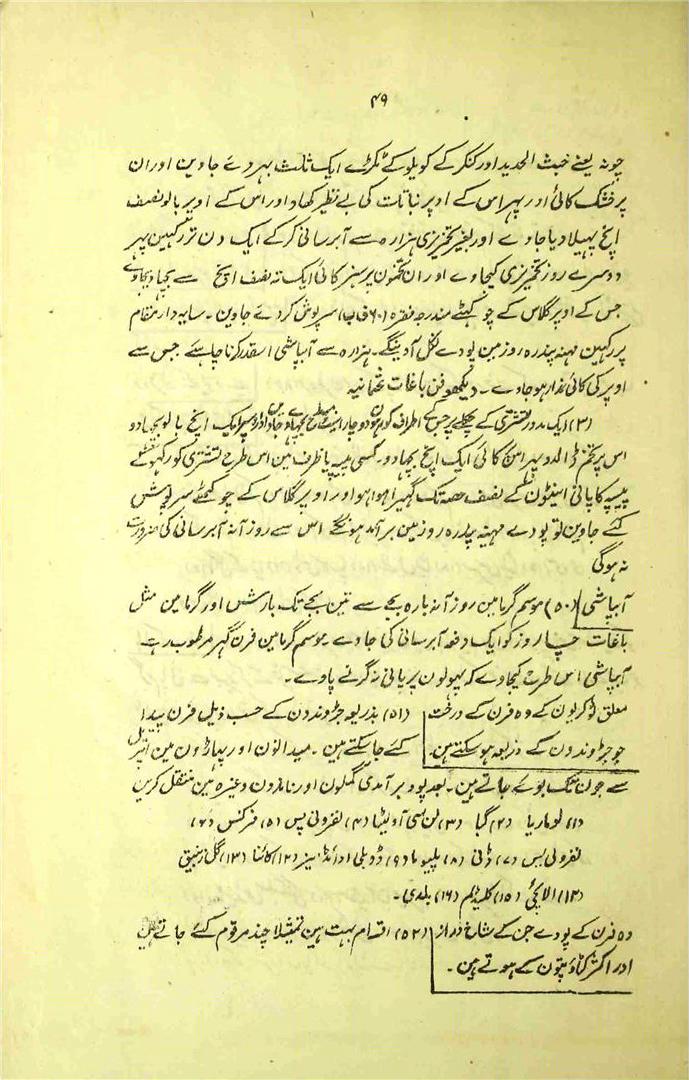 ۴۹
چونہ یعنے خبث الحدید اور کنکر کے کویلو کے ٹکڑے ایک ثلث بھر دے جاوین اور ان
پر خشک کائی اور پھر اس کے اوپر نباتات کی بے نظیر کھاد اور اس کے اوپر بالو نصف
انچ پہیلا دیا جاوے اور بغیر تخمریزی ہزارہ سے آبرسانی کر کے ایک دن تر رکہین پہر
دوسرے روز تخمریزی کیجاوے اور ان تخمون پر سبز کائی ایک تہ نصف انچ سے بچہا دیجاوے
جس کے اوپر گلاس کے چوکہٹے مندرجہ فقرہ (۶۰ ف اب) سرپوش کر دے جاوین ۔ سایہ دار مقام
پر رکہین مہنہ پندرہ روز مین پودے نکل آوینگے۔ ہزارہ سے آبپاشی اسقدر کرنا چاہئے جس سے
اوپر کی کائی نمدار ہو جاوے ۔ دیکھو فن باغات عثمانیہ
(۳) ایک مدور تشتری کے پچہلے پر جس کے اطراف ایک انچ بالو بچہا دو
اس پر تخم ڈالدو پہر اس کائی ایک انچ بچہا دو۔ کسی پیپہ یا ظرف مین اس طرح تشتری کو رکہو کہ
پیپہ کا پانی اینٹون کے نصف حصہ تک گہیرا ہوا ہو اور اوپر گلاس کے چوکہٹے سرپوش
کئے جاوین تو پودے مہینہ پندرہ روز مین برآمد ہونگے اس سے روزآنہ آبرسانی کی ضرورت
نہ ہوگی
آبپاشی (۵۰) موسم گرما مین روزآنہ بارہ بجے سے تین بجے تک بارشس اور گرما مین مثل
باغات چار روز کو ایک دفعہ آبرسانی کی جاوے ۔ موسم گرما مین فرن گہر مرطوب رہے
آبپاشی اس طرح کیجاوے کہ پہولون پر پانی نہ گرنے پاوے ۔
معلق ٹوکریون کے وہ فرن کے درخت (۵۱) بذریعہ جڑوندون کے حسب ذیل فرن پیدا
جو جڑوندون کے ذریعہ ہو سکتے ہین۔ کئے جا سکتے ہین ۔ میدانون اور پہاڑون مین اپریل
سے جون تک بوئے جاتے ہین ۔ بعد پود برآمدی گملون اور ناندون وغیرہ مین منتقل کرین
(۱) لوماریا (۲) گیا (۳) لن سی آولیٹا (۴) نفرولی پس (۵) فرکنس (۶)
نفرولی پس (۷) ڈنی (۸) پلیوما (۹) ڈوبلی ادائڈ سیز (۱۲) کائنا (۱۳) گل زنبیق
(۱۴) الائچی (۱۵) کلیڈیم (۱۶) ہلدی ۔
وہ فرن کے پودے جن کے شاخ دراز (۵۲) اقسام بہت ہین تمثیلاً چند مرقوم کئے جاتے ہین
اور اکثر کٹاؤ پتون کے ہوتے ہین ۔